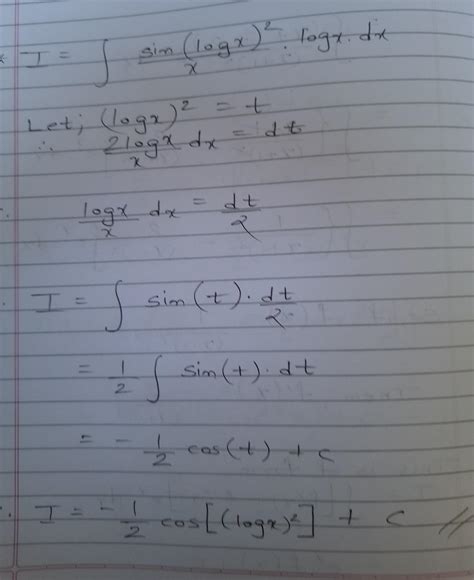 * I = ∫ sin(logx)²/x . logx. dx
Let; (logx)² = t
∴ 2logx/x dx = dt
∴ logx/x dx = dt/2
∴ I = ∫ sin(t). dt/2
= 1/2 ∫ sin(t). dt
= - 1/2 cos(t) + c
∴ I = - 1/2 cos[(logx)²] + c //